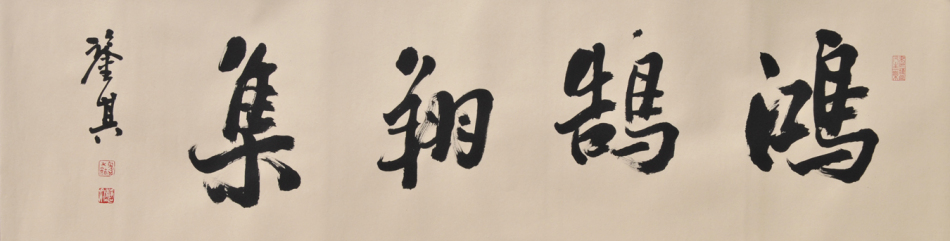 鴻鵠翔集
其